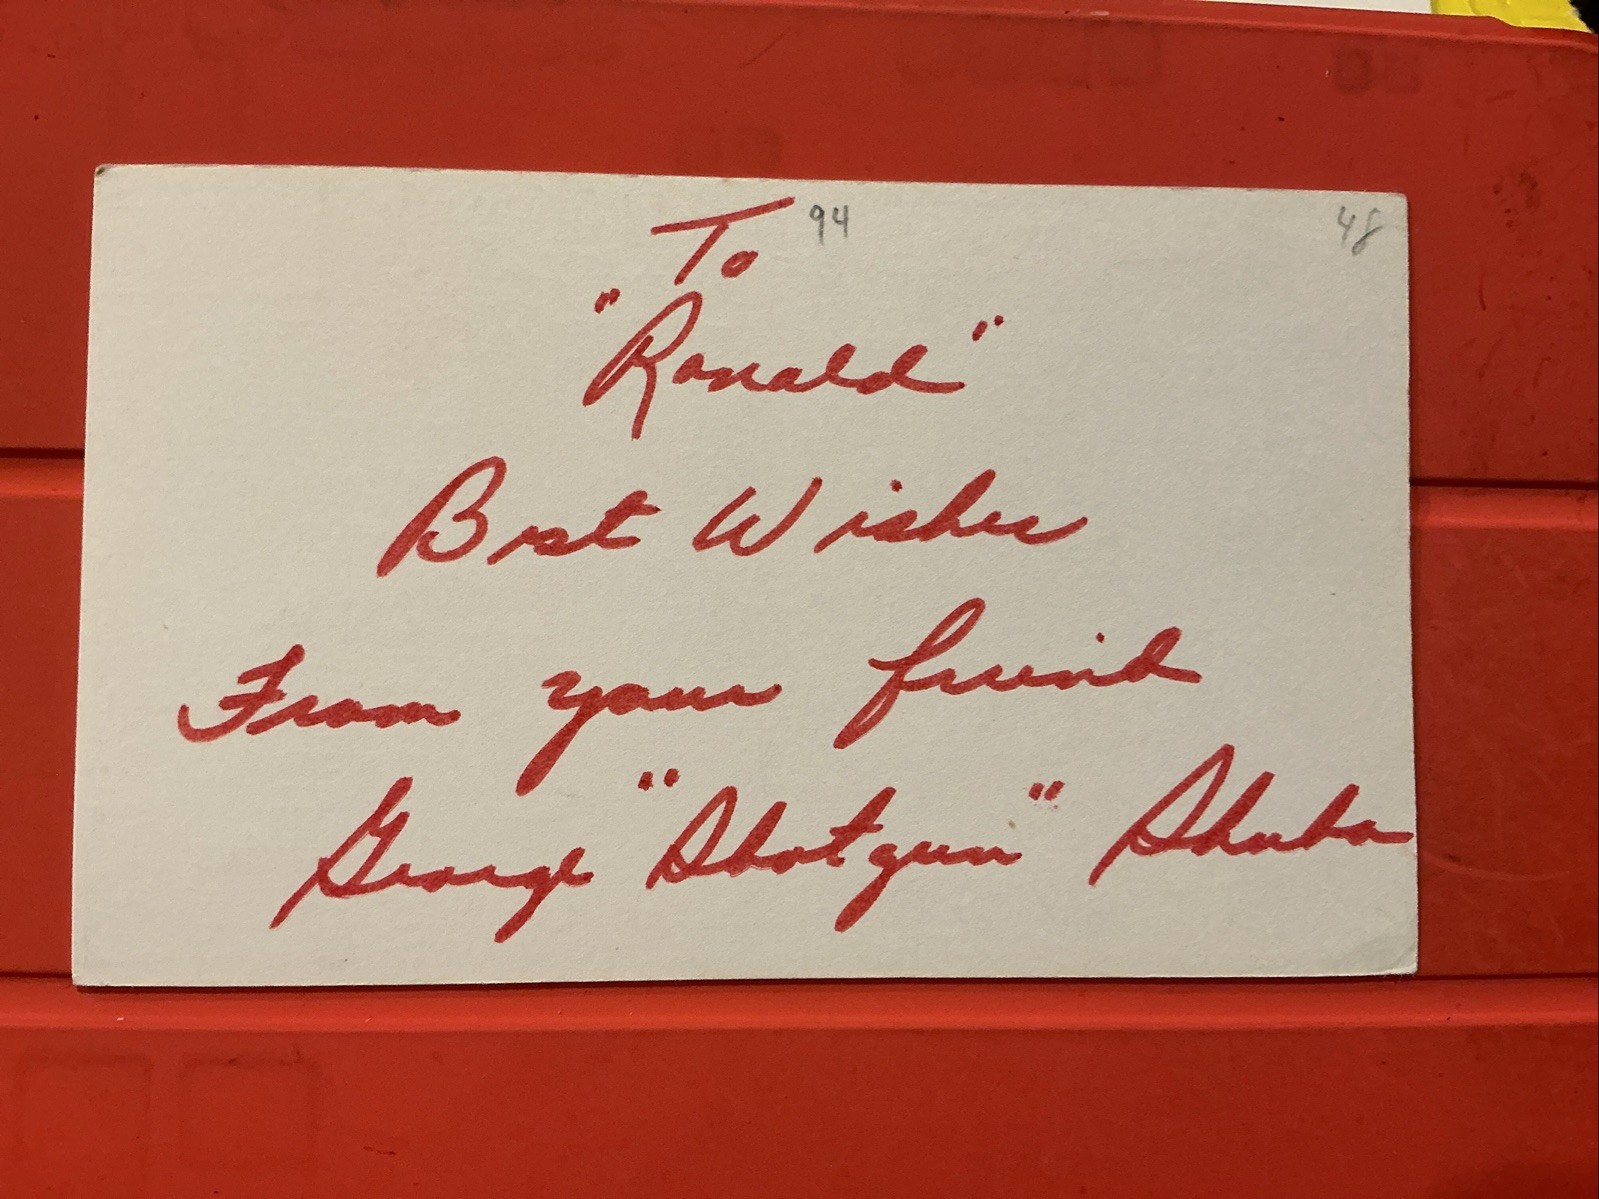 To 94 48
"Ronald"
Best Wishes
From your friend
George "Shotgun" Shuba